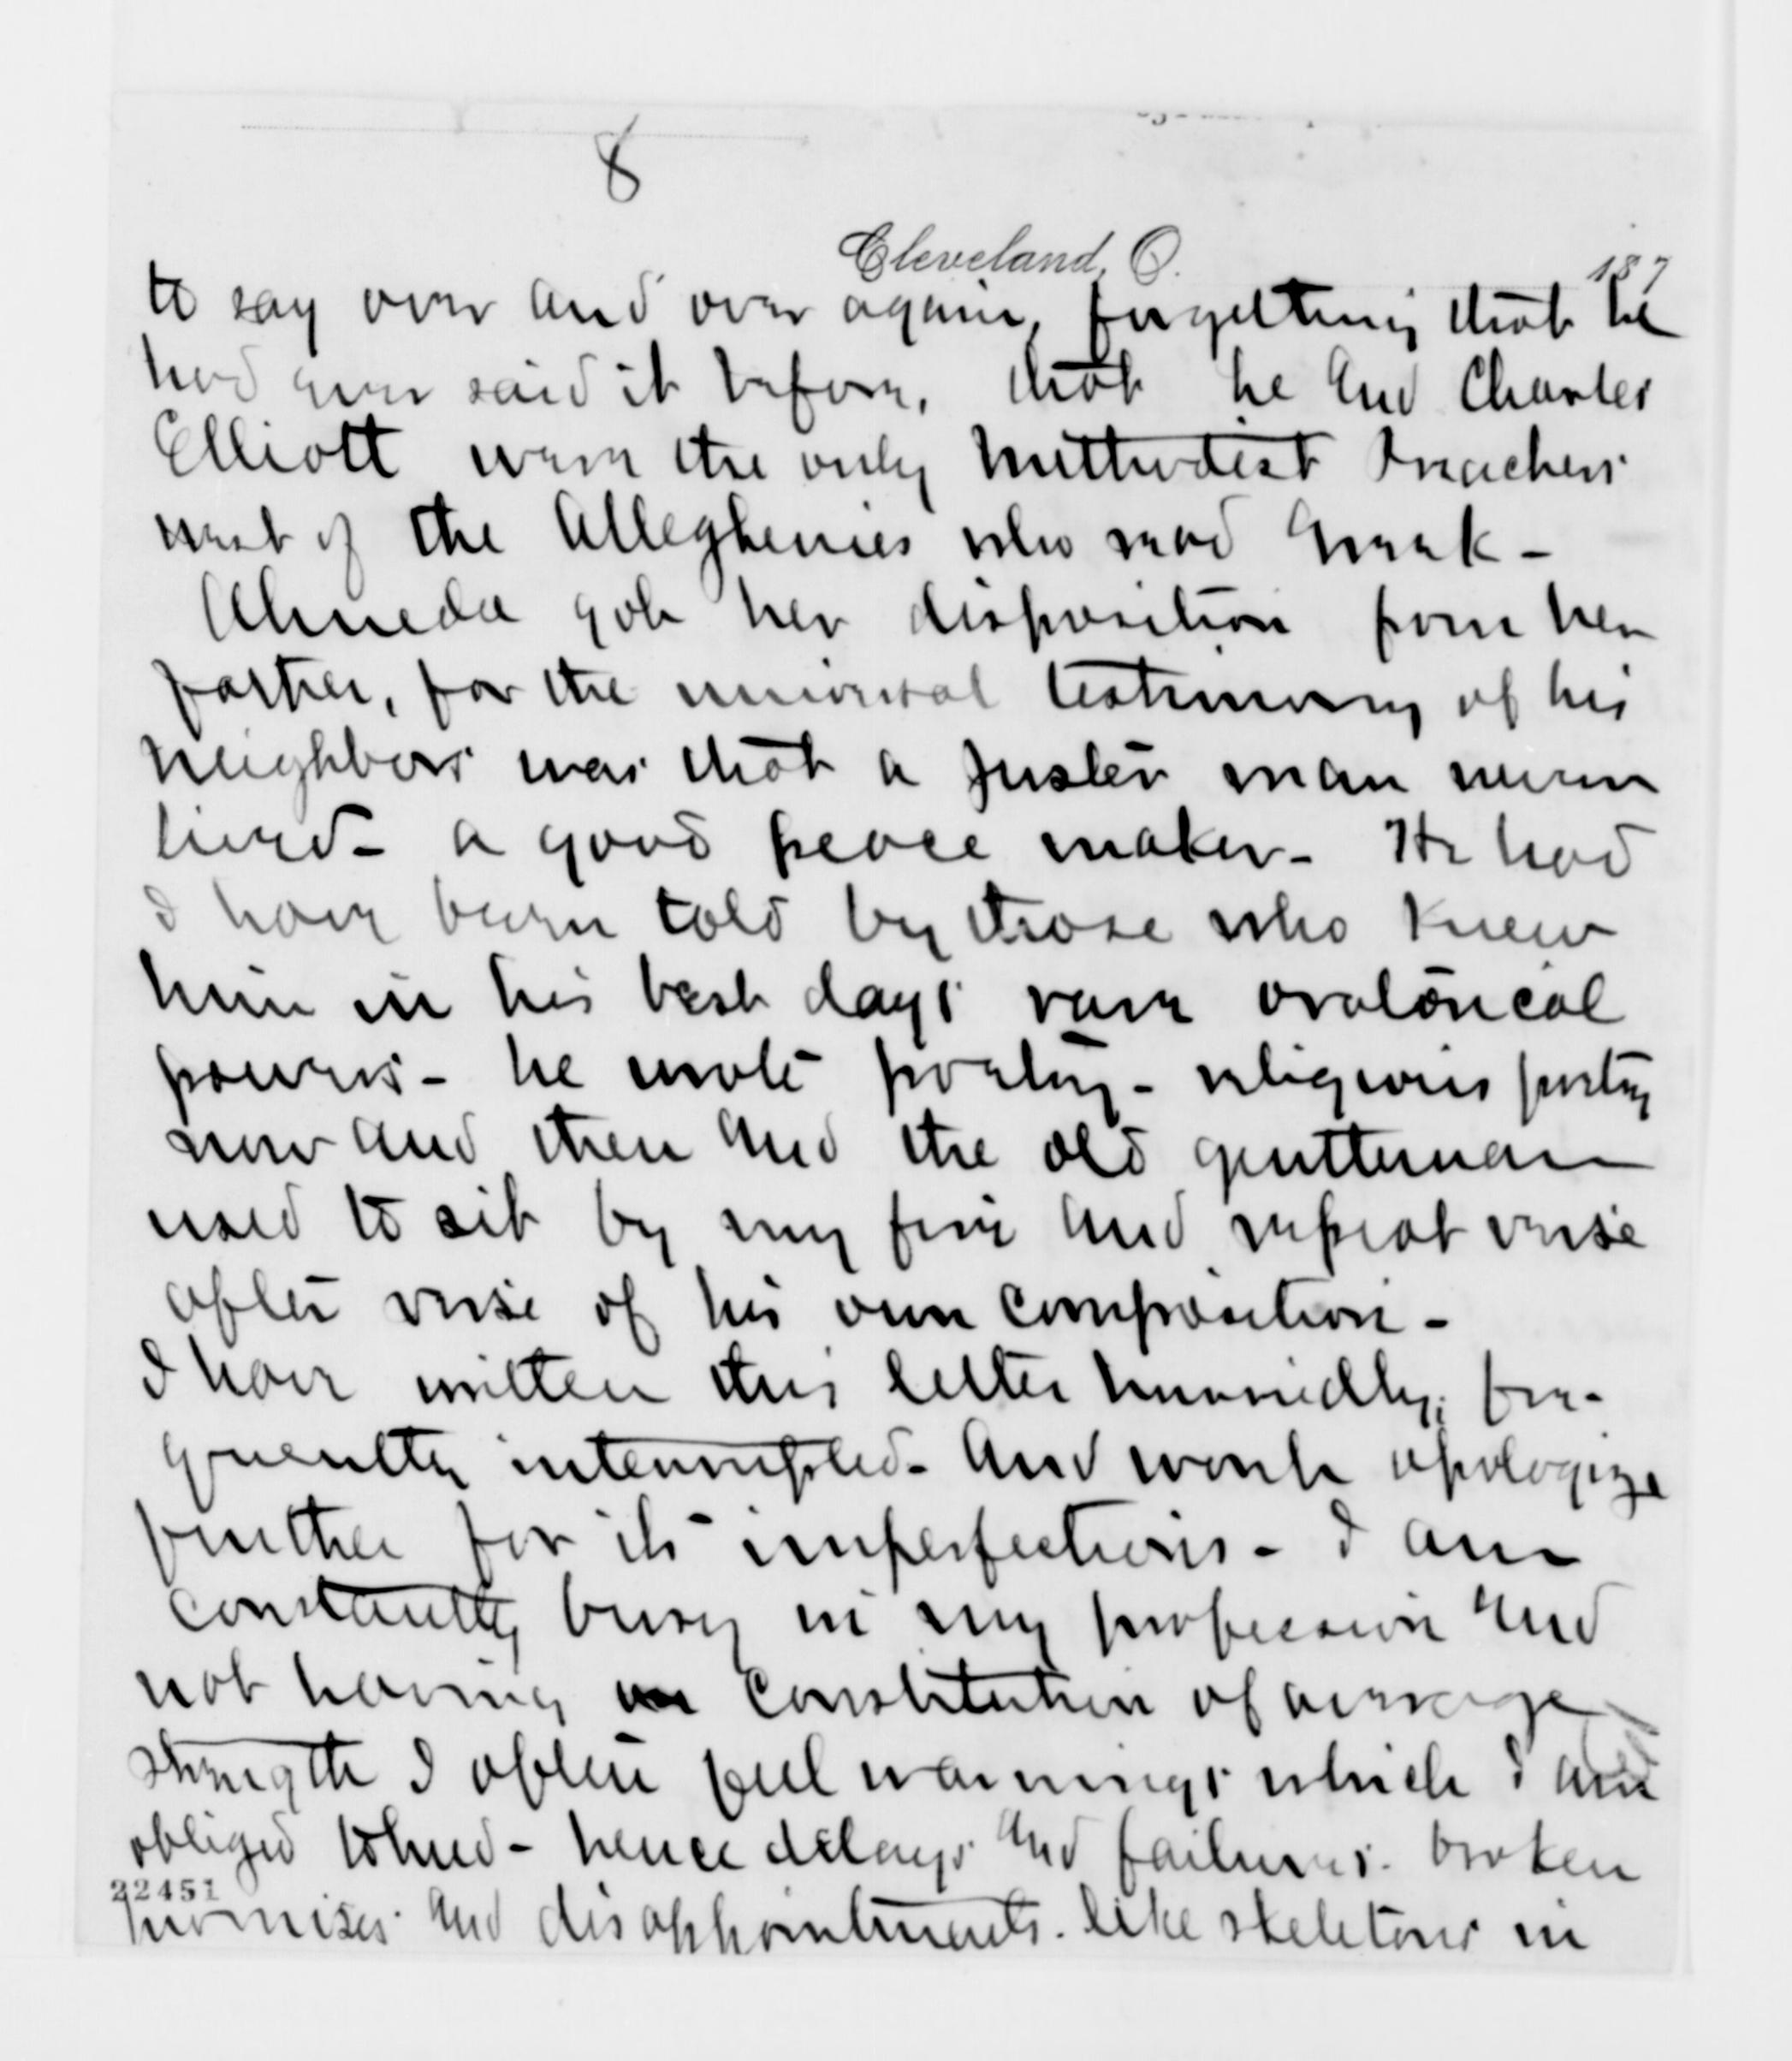 8
Cleveland, O. 187
to say over and over again, forgetting that he
had ever said it before, that he and Charles
Elliott were the only Methodist Preachers
west of the Alleghenies who read Greek -
Almeda got her disposition from her
father, for the universal testimony of his
neighbors was that a juster man never
lived - a good peace maker - He had
I have been told by those who knew
him in his best days rare oratorical
powers - he wrote poetry - religious poetry
now and then and the old gentleman
used to sit by my fire and repeat verse
after verse of his own composition -
I have written this letter hurriedly, fre-
quently interrupted - and wont apologize
further for its imperfections - I am
constantly busy in my profession and
not having a constitution of average
strength I often feel warnings which I am
obliged to heed - hence delays and failures. broken
22451
promises and disappointments. like skeletons in